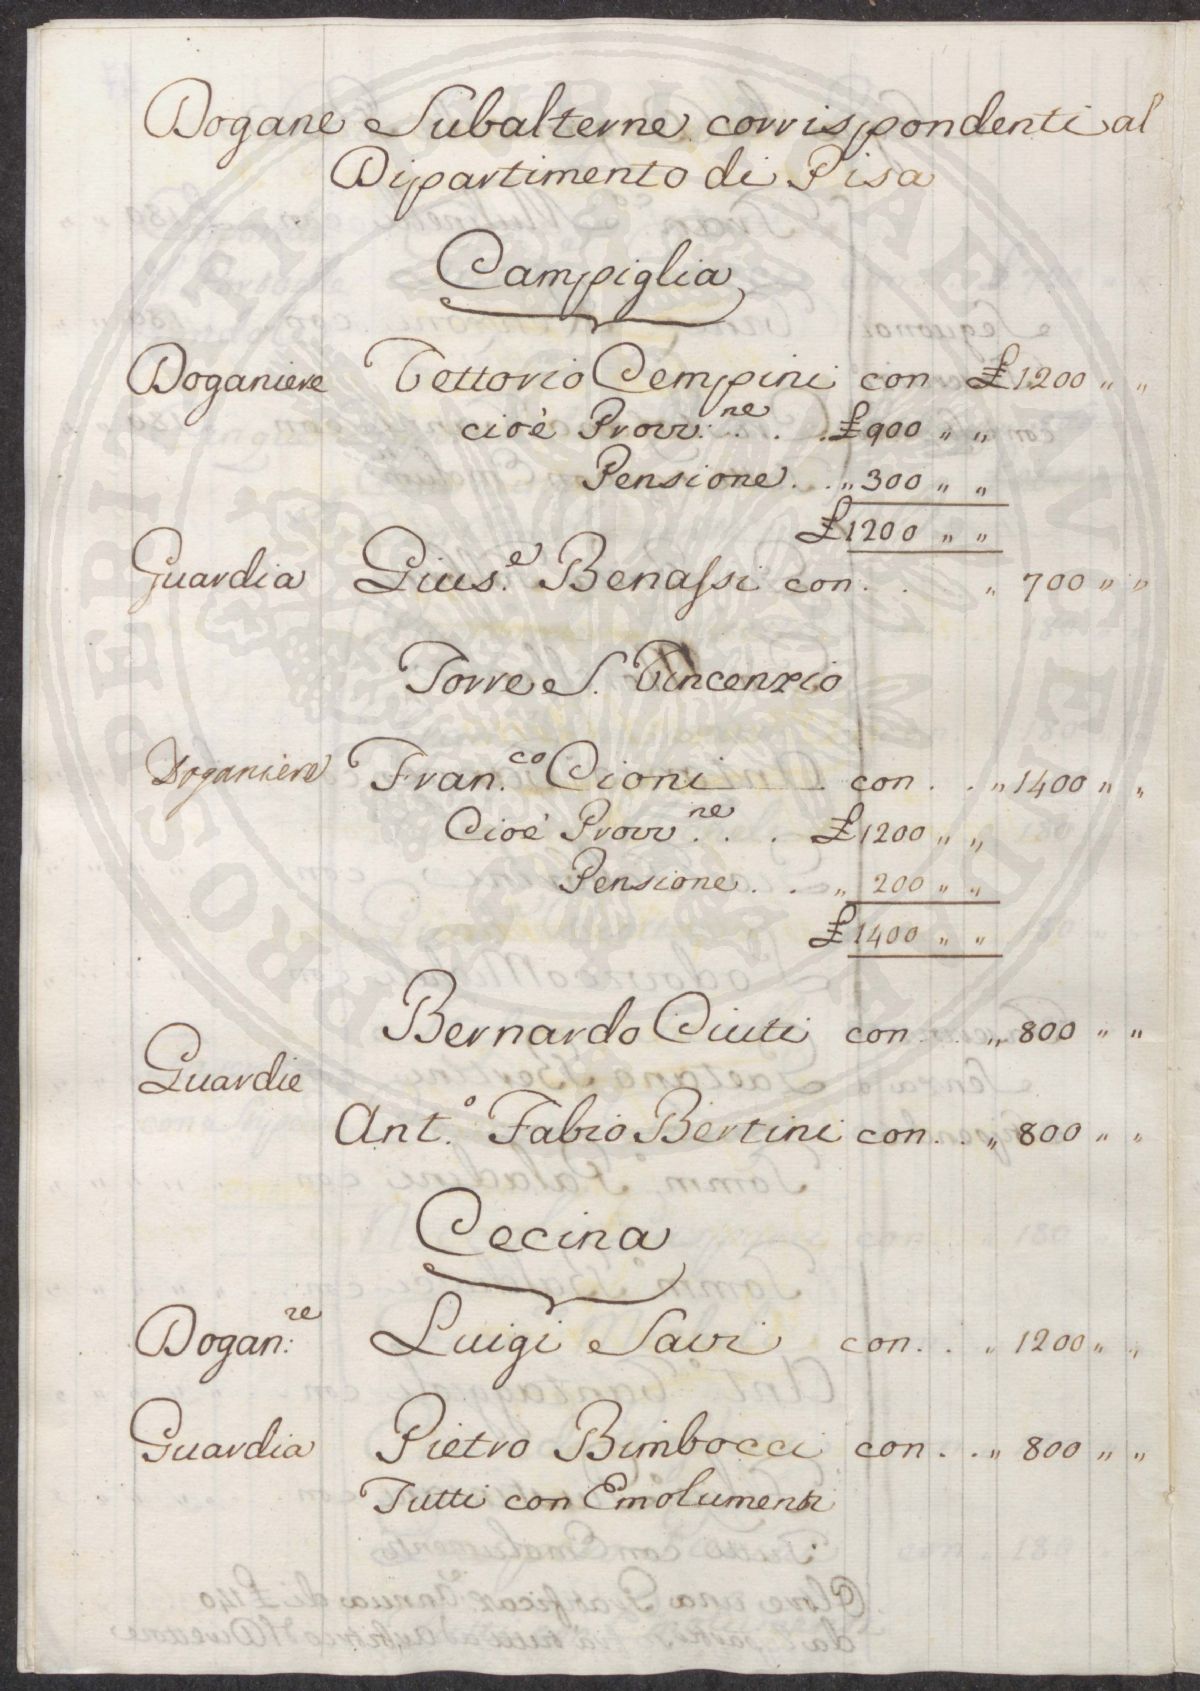 Dogane Subalterne corrispondenti al
Dipartimento di Pisa
Campiglia
Doganiere Vettorio Cempini con £ 1200 „ „
cioè Provv:ne . . . £ 900 „ „
Pensione . . „ 300 „ „
£ 1200 „ „
Guardia Gius.e Benassi con . . . „ 700 „ „
Torre S. Vincenzio
Doganiere Fran.co Cioni con . . „ 1400 „ „
Cioè Provv.ne . . £ 1200 „ „
Pensione . . „ 200 „ „
£ 1400 „ „
Bernardo Ciuti con . . „ 800 „ „
Guardie
Ant.o Fabio Bertini con . . „ 800 „ „
Cecina
Dogan:re Luigi Savi con . . „ 1200 „ „
Guardia Pietro Bimbocci con . . „ 800 „ „
Tutti con Emolumenti